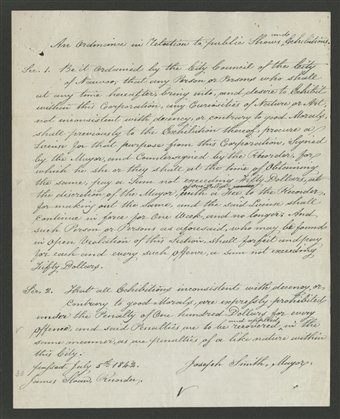 An Ordinance in Relation to public Shows and Exhibitions.
Sec. 1. Be it ordained by the City Council of the City
of Nauvoo, that any Person or Persons who shall
at any time hereafter bring into, and desire to Exhibit
within this Corporation, any Curiosities of Nature or Art,
not inconsistent with decency, or contrary to good Morals,
shall previously to the Exhibition thereof, procure a
License for that purpose from this Corporation, Signed
by the Mayor, and Countersigned by the Recorder, for
which he she or they shall at the time of Obtaining
the same, pay a Sum not exceeding Fifty Dollars, at
the discretion of the Mayor, with a Fee to the Recorder,
for making out the Same, and the said License shall
continue in force for One Week, and no longer: And
such Person or Persons as aforesaid, who may be found
in Open Violation of this Section, Shall forfeit and pay
for each and every such Offence, a sum not exceeding
Fifty Dollars.
Sec. 2. That all Exhibitions inconsistent with decency, or
contrary to good Morals, are expressly prohibited
under the Penalty of One hundred Dollars for every
offence; and said Penalties are to be recovered and applied, in the
same manner as are penalties of a like nature within
this City.
passed July 5th 1842.
Joseph Smith, Mayor.
James Sloan Recorder.